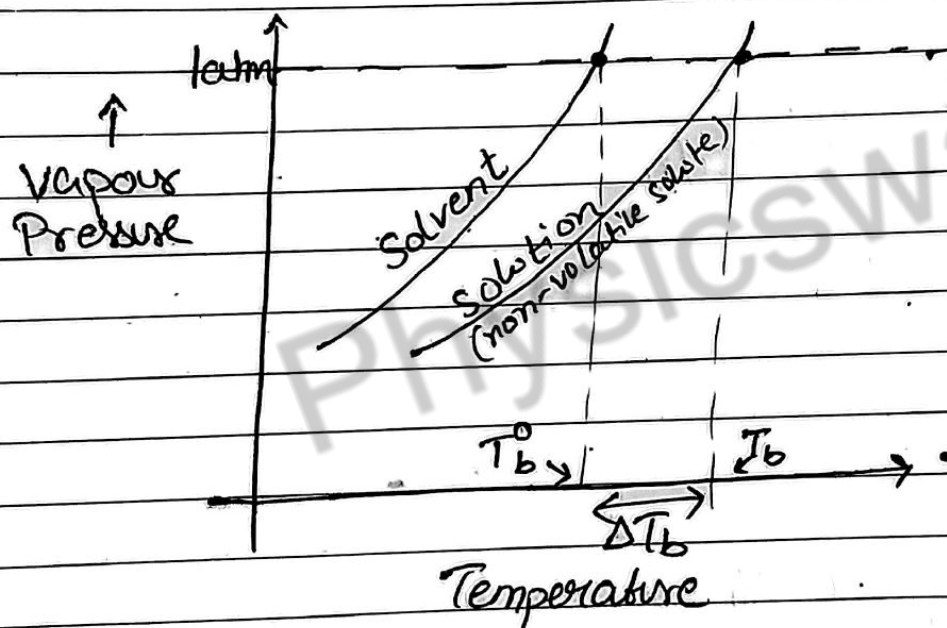 1atm
Vapour
Pressure
Solvent
Solution
(non-volatile solute)
T°b
Tb
ΔTb
Temperature
Physicsw